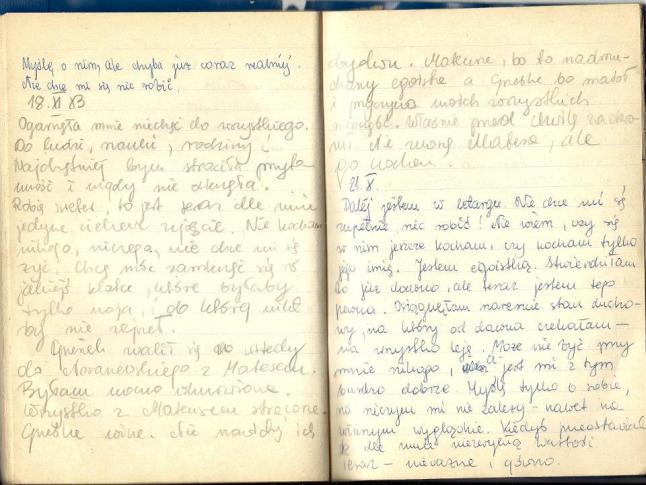 Myślę o nim, ale chyba już coraz realniej.
Nie chce mi się nic robić.
18. XI 83
Ogarnęła mnie niechęć do wszystkiego.
Do ludzi, nauki, rodziny!
Najchętniej bym straciła przyto
mność i nigdy nie
Robię sweter, to jest teraz dla mnie
jedyne ciekawe zajęcie. Nie kocham
nikogo, niczego, nie chce mi się
żyć. Chcę móc zamknąć się w
jakiejś klatce, które byłaby
tylko moja, i do której nikt
by nie zajrzał.
Grzesiek walił się wtedy
do z Mateuszem.
Byłam mocno
Wszystko z Mateuszem stracone.
Grześka wina. Nie nawidzę ich
obydwu. Mateusz, bo to
egoista a Grześka bo matoł
i
Właśnie przed chwilą
Nie znoszę Mateusza, ale
go kocham.
21. X.
Dalej jestem w letargu. Nie chce mi się
zupełnie nic robić! Nie wiem, czy się
w nim jeszcze kocham, czy kocham tylko
jego imię. Jestem egoistką. Stwierdziłam
to już dawno, ale teraz jestem tego
pewna. Osiągnęłam nareszcie stan ducho-
wy, na który od dawna czekałam –
na wszystko leję. Może nie być przy
mnie nikogo, a jest mi z tym
bardzo dobrze. Myślę tylko o sobie,
na niczym mi nie zależy – nawet na
własnym wyglądzie. Kiedyś przedstawiał
dla mnie niezwykłą wartość
teraz – nieważne i gówno.